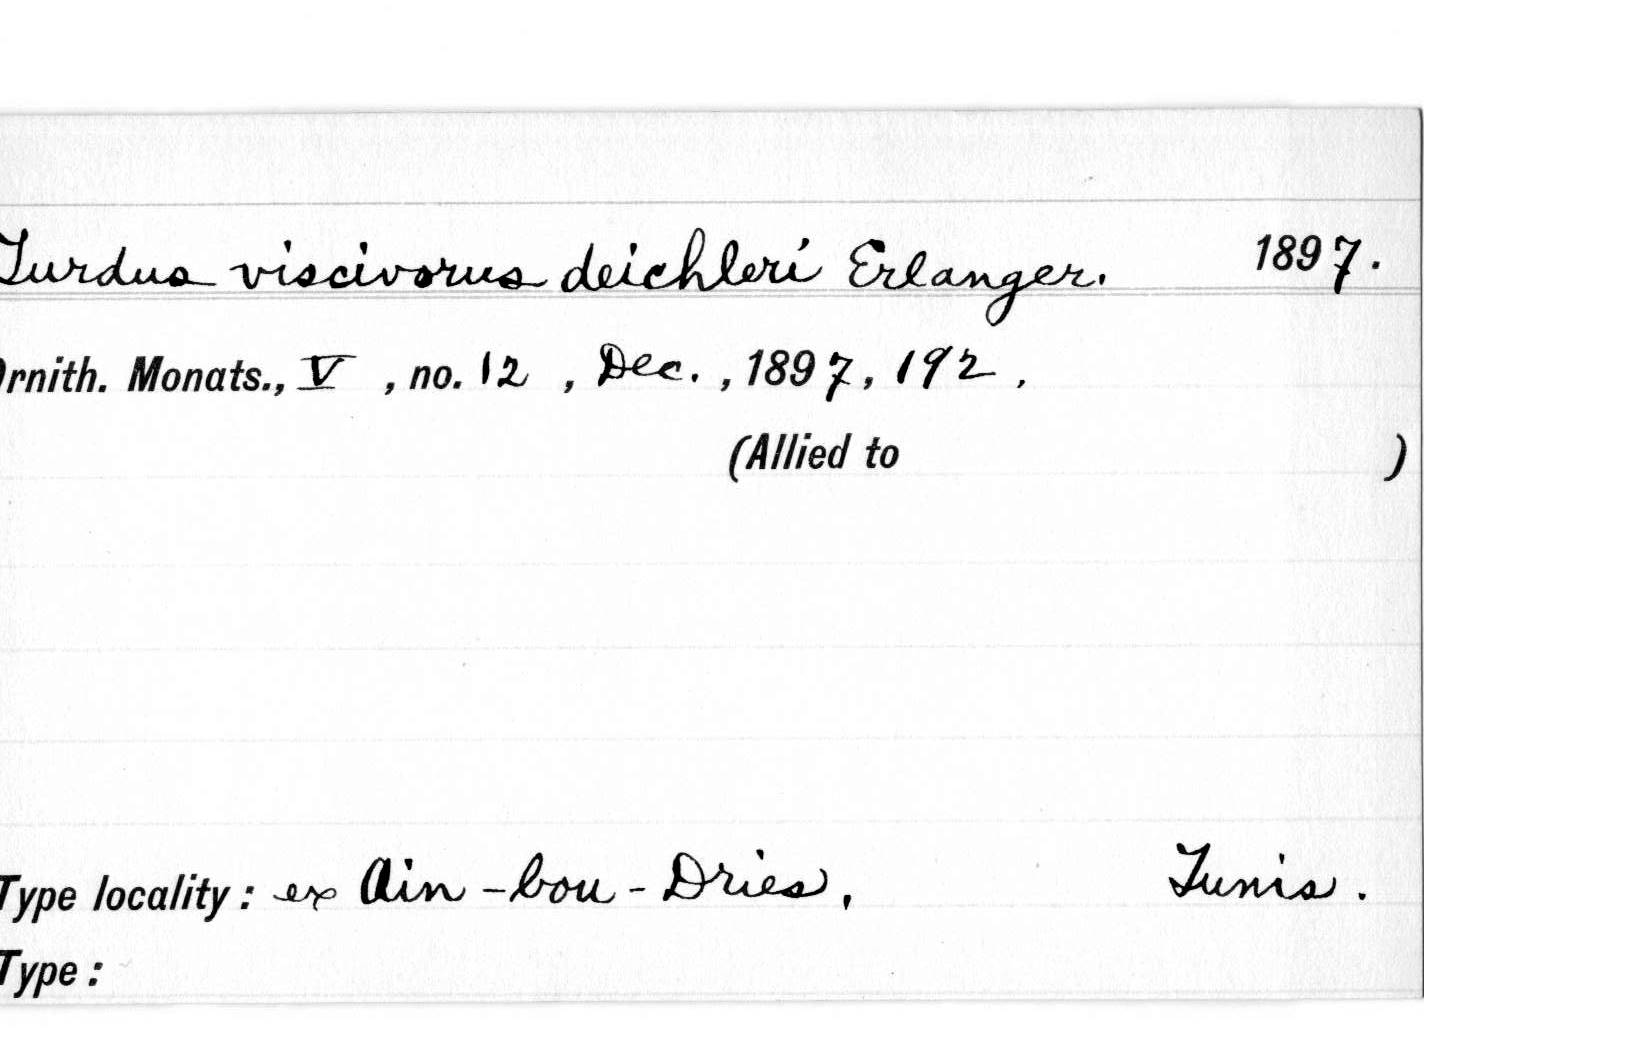 Turdus viscivorus deichleri Erlanger. 1897.
Ornith. Monats., V, no. 12, Dec., 1897, 192.
(Allied to )
Type locality: ex Ain-bou-Dries, Tunis.
Type: